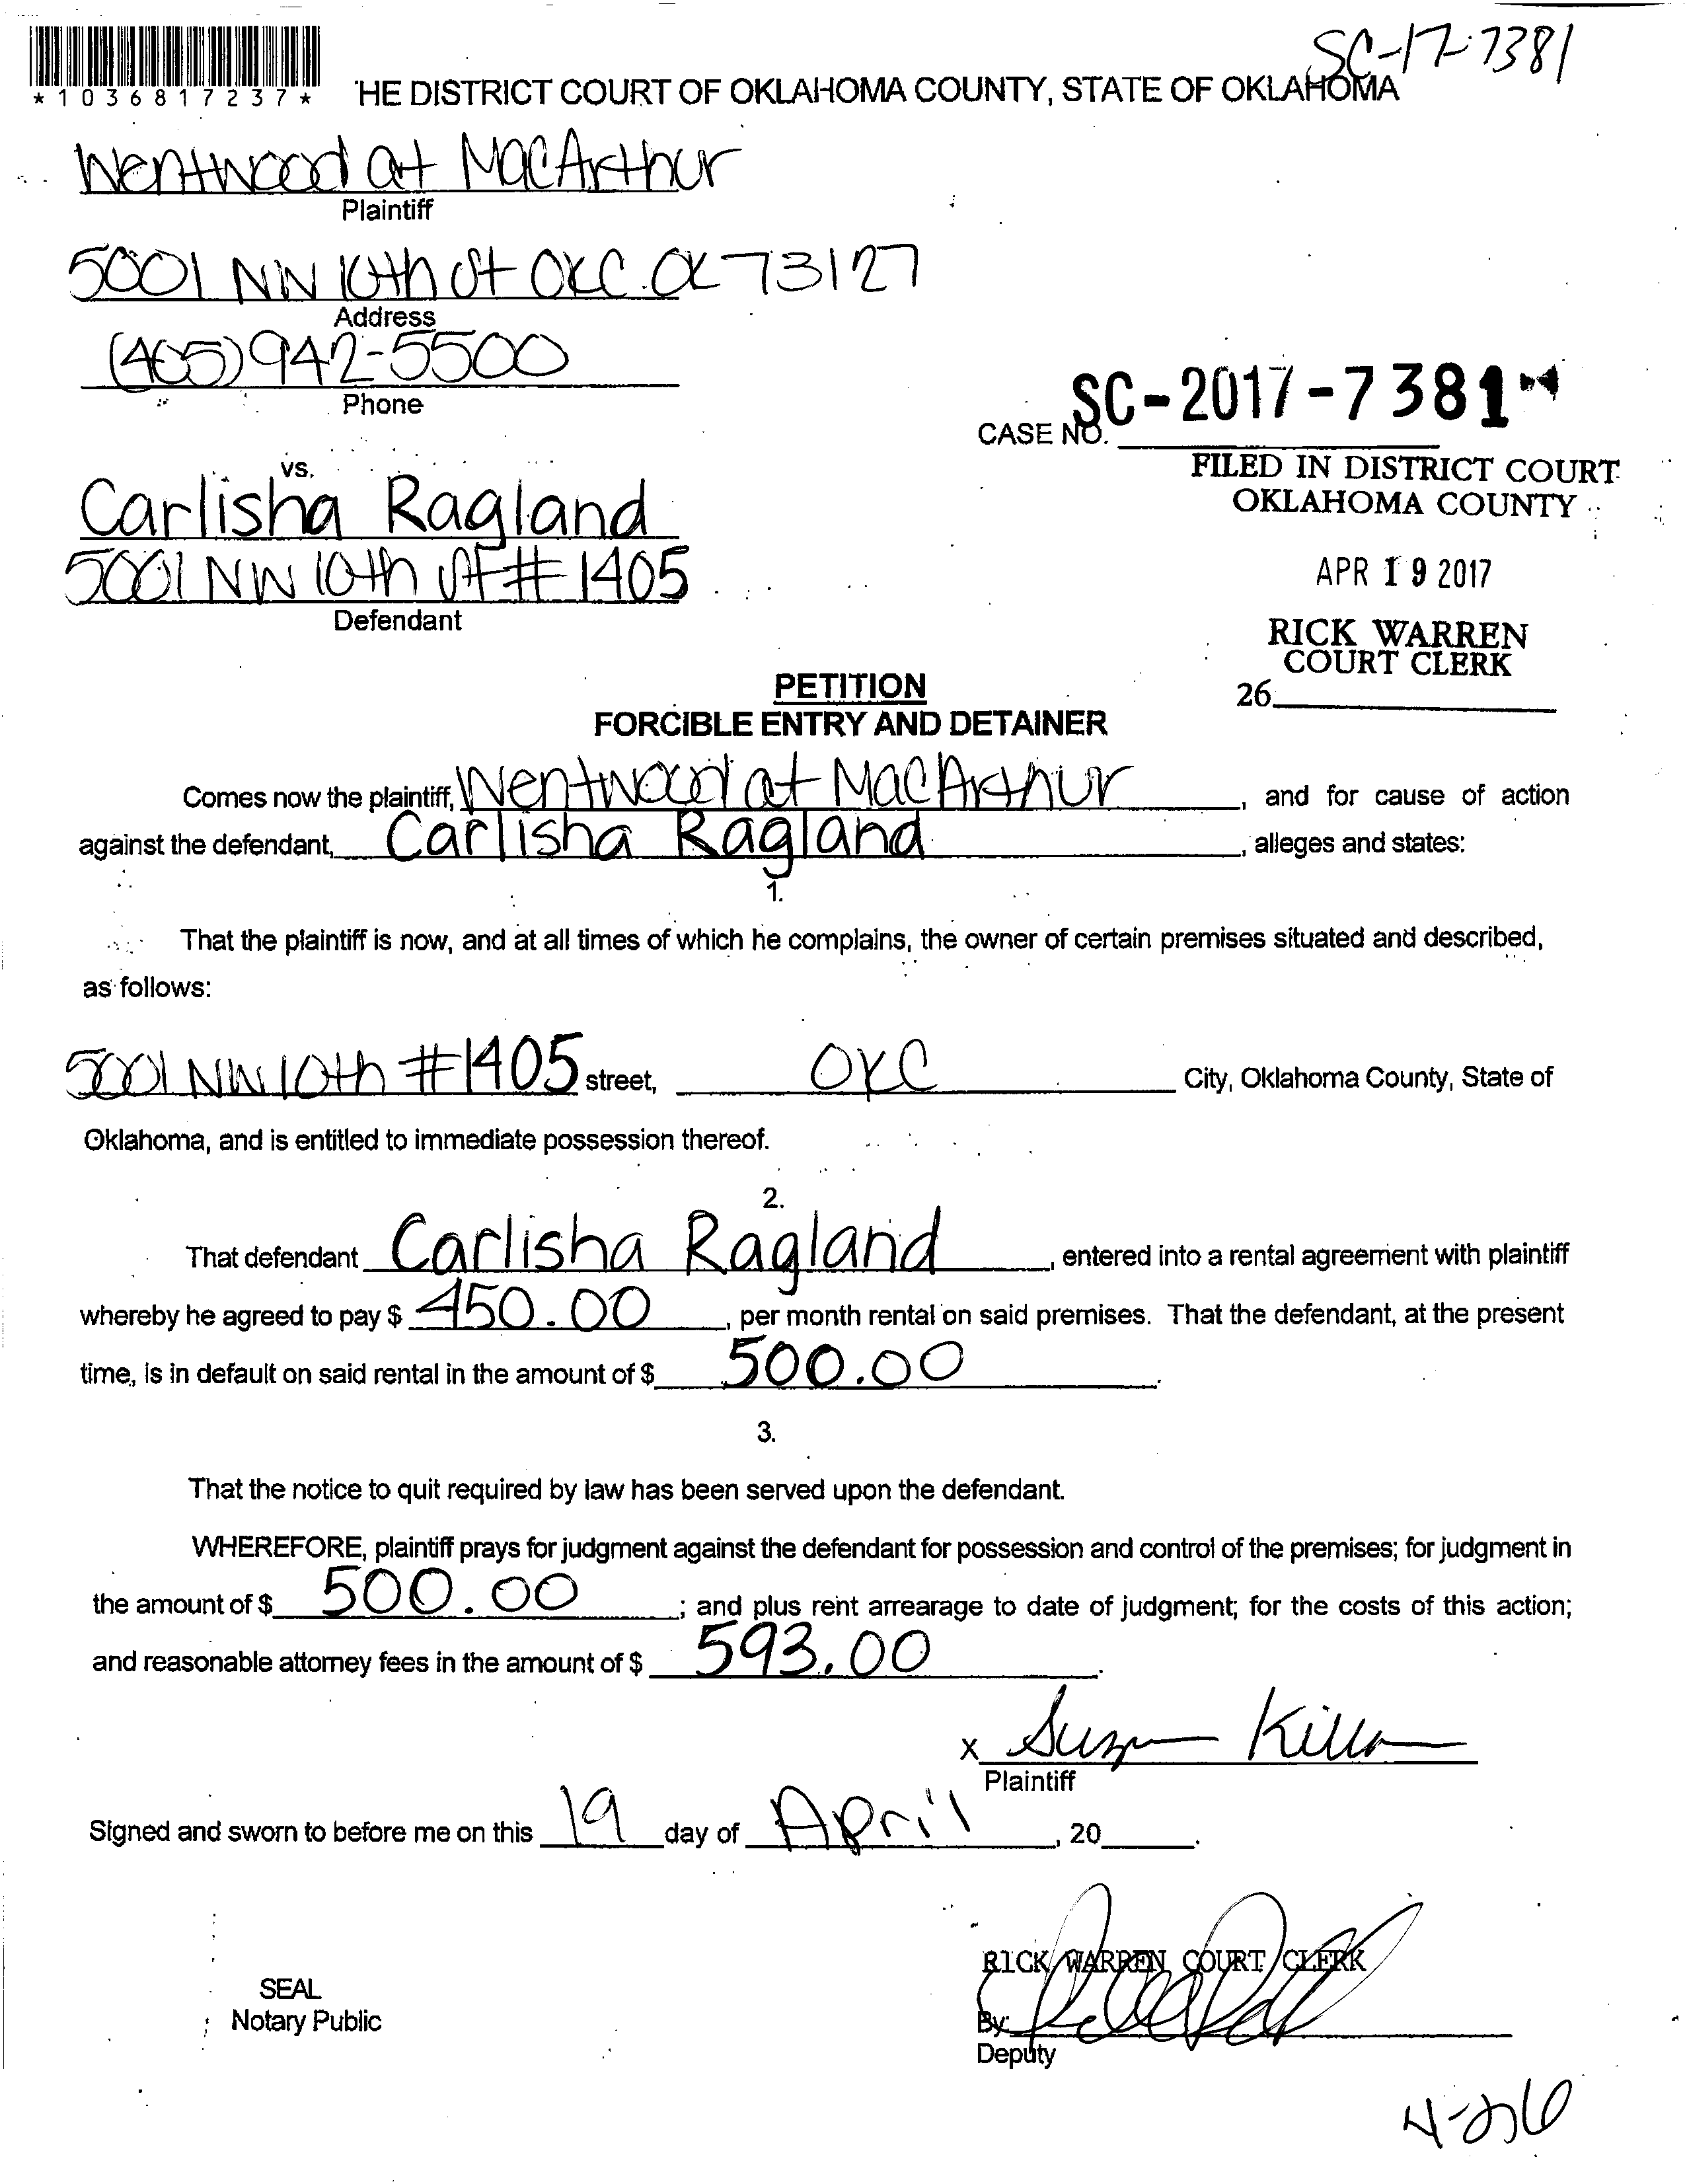 SC-17-7381
*1036817237*
'HE DISTRICT COURT OF OKLAHOMA COUNTY, STATE OF OKLAHOMA
Wentwood at MacArthur
Plaintiff
5001 NW 10th St OKC. OK 73127
Address
(405) 942-5500
Phone
CASE NO. SC-2017-7381
FILED IN DISTRICT COURT
OKLAHOMA COUNTY
APR 19 2017
RICK WARREN
COURT CLERK
26
vs.
Carlisha Ragland
5001 NW 10th St # 1405
Defendant
PETITION
FORCIBLE ENTRY AND DETAINER
Comes now the plaintiff, Wentwood at MacArthur, and for cause of action
against the defendant, Carlisha Ragland, alleges and states:
1.
That the plaintiff is now, and at all times of which he complains, the owner of certain premises situated and described,
as follows:
5001 NW 10th #1405 street, OKC City, Oklahoma County, State of
Oklahoma, and is entitled to immediate possession thereof.
2.
That defendant Carlisha Ragland, entered into a rental agreement with plaintiff
whereby he agreed to pay $ 450.00, per month rental on said premises. That the defendant, at the present
time, is in default on said rental in the amount of $ 500.00.
3.
That the notice to quit required by law has been served upon the defendant.
WHEREFORE, plaintiff prays for judgment against the defendant for possession and control of the premises; for judgment in
the amount of $ 500.00; and plus rent arrearage to date of judgment; for the costs of this action;
and reasonable attorney fees in the amount of $ 593.00.
x
Plaintiff
Signed and sworn to before me on this 19 day of April, 20____.
SEAL
Notary Public
RICK WARREN COURT CLERK
By:
Deputy
4-26